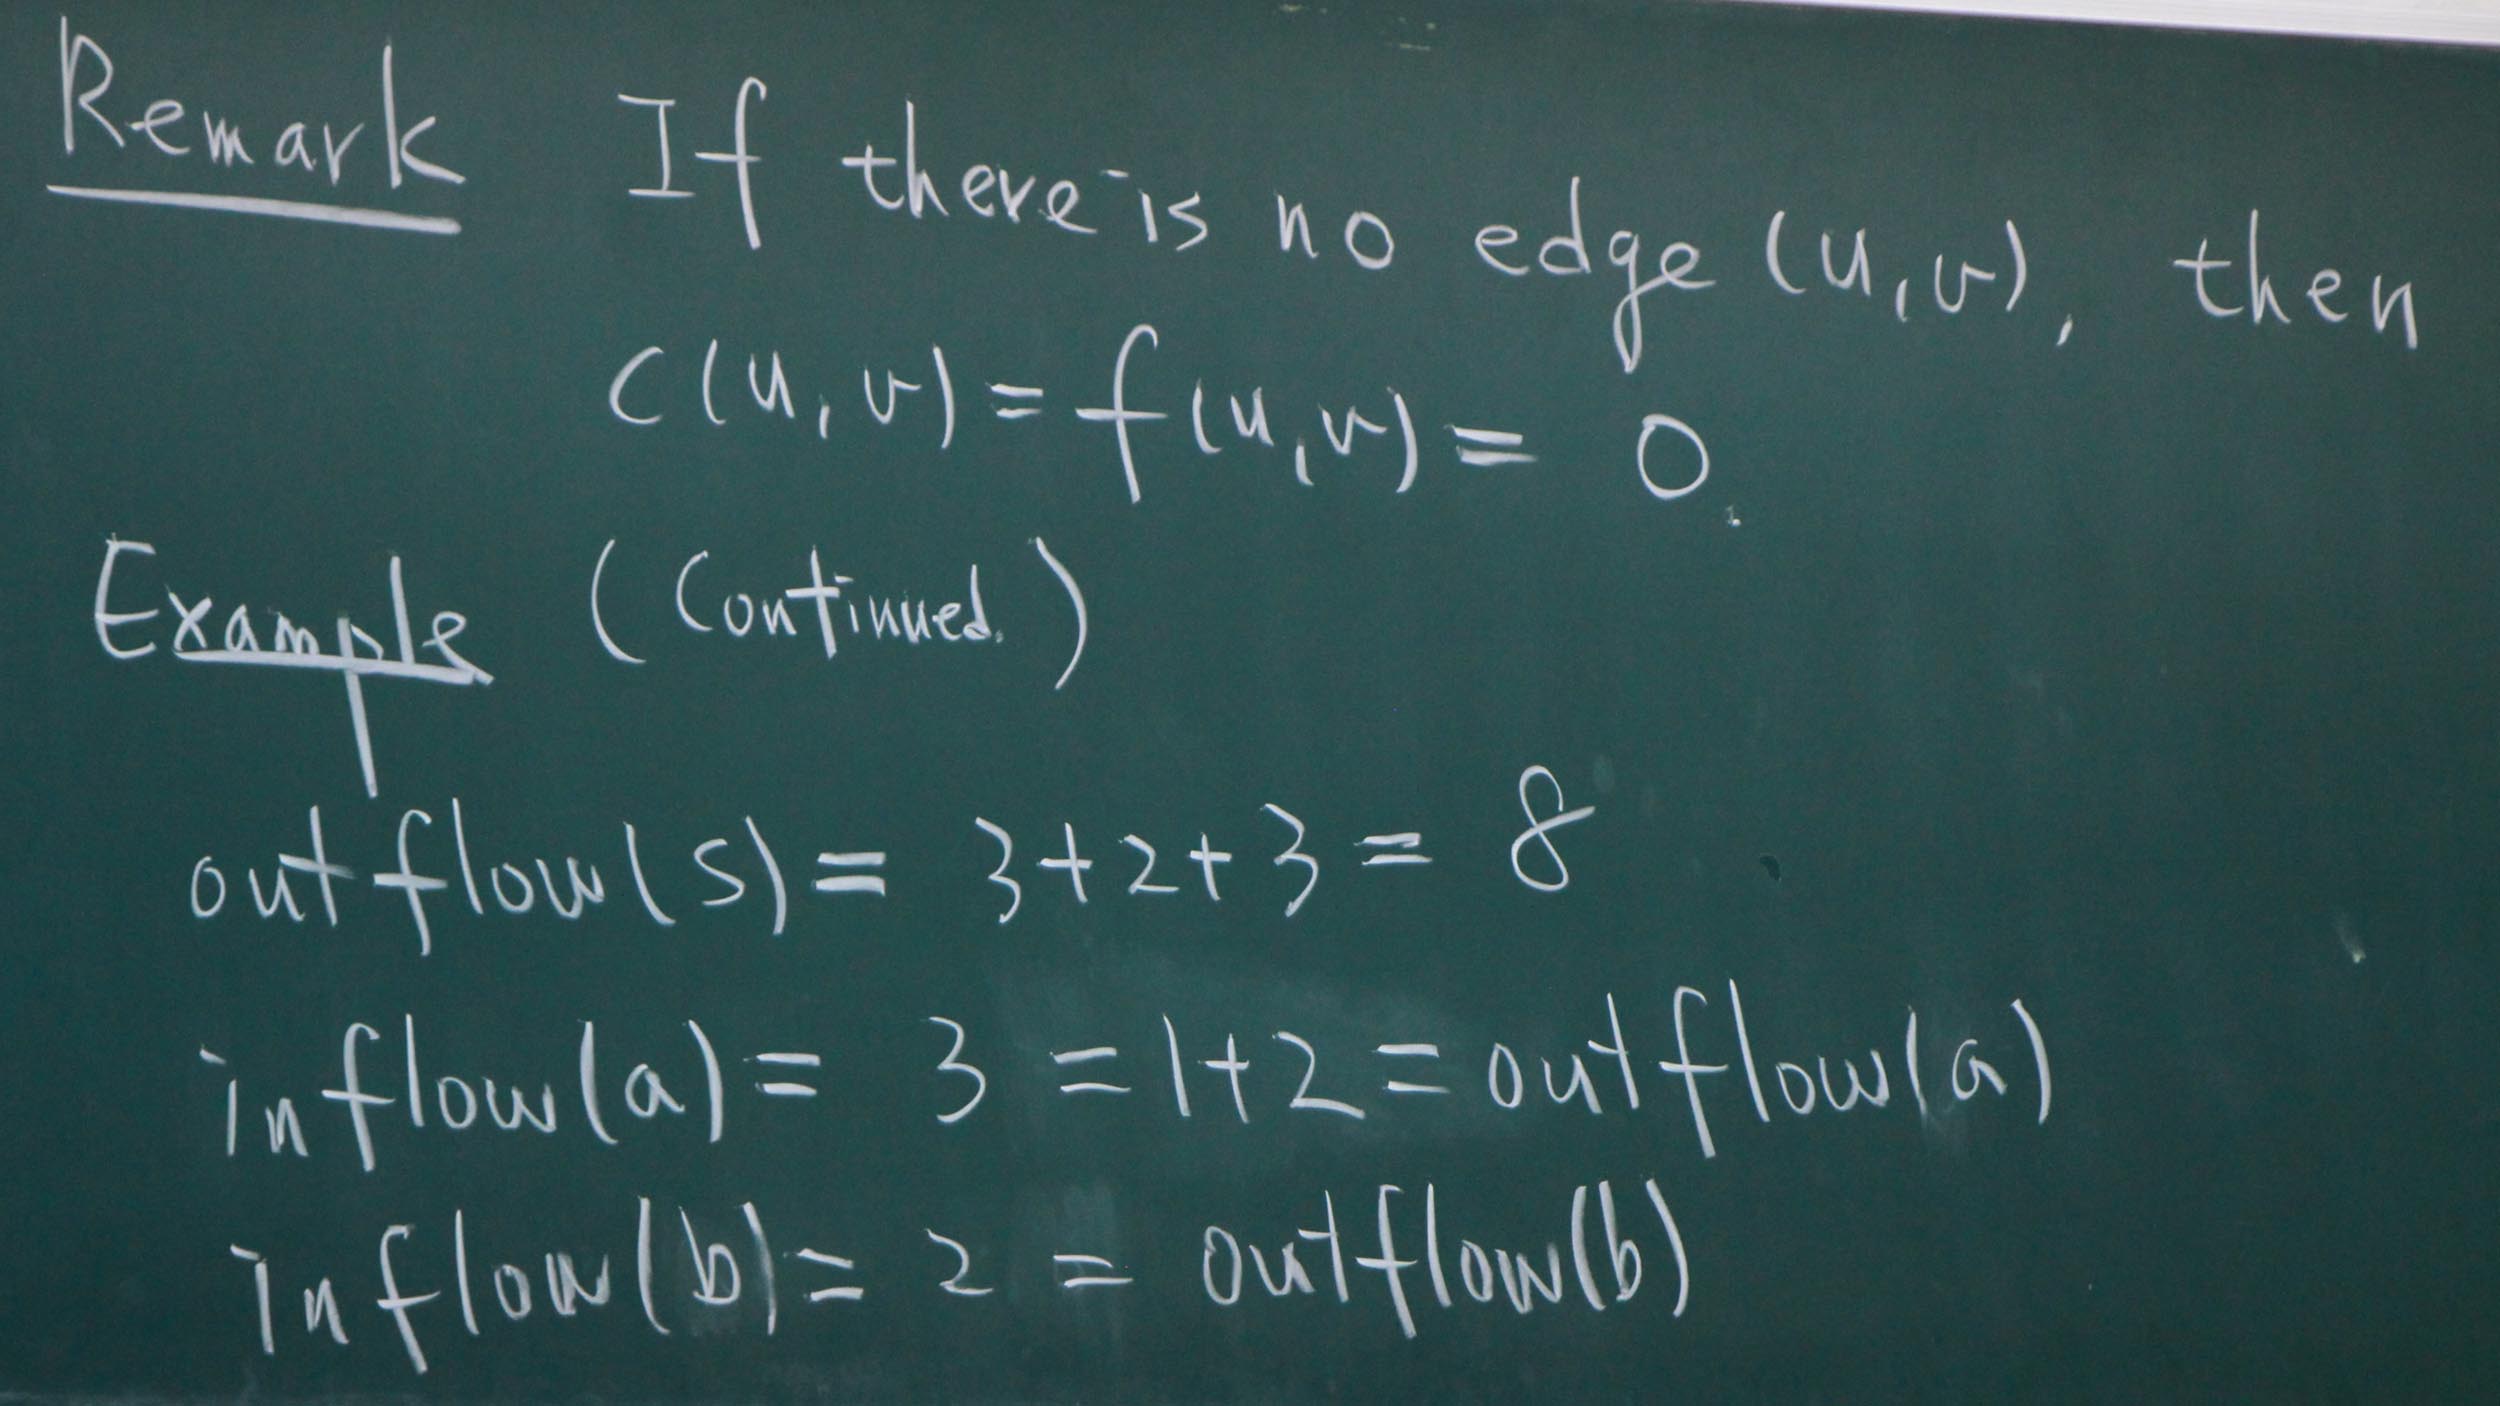 Remark If there is no edge (u,v), then
c(u,v) = f(u,v) = 0.
Example (Continued.)
outflow(s) = 3+2+3 = 8
inflow(a) = 3 = 1+2 = outflow(a)
inflow(b) = 2 = outflow(b)